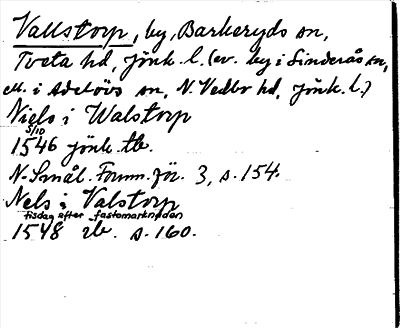 Vallstorp, by, Barkeryds sn,
Tveta hd, Jönk. l. (ev. by i Linderås sn,
ell. i Adelövs sn, N. Vedbo hd, Jönk. l.)
Niels i Walstorp
5/10
1546 Jönk. tb.
N. Smål. Fornm.för. 3, s. 154.
Nels i Valstorp
tisdag efter fastemarknaden
1548 s. 160.